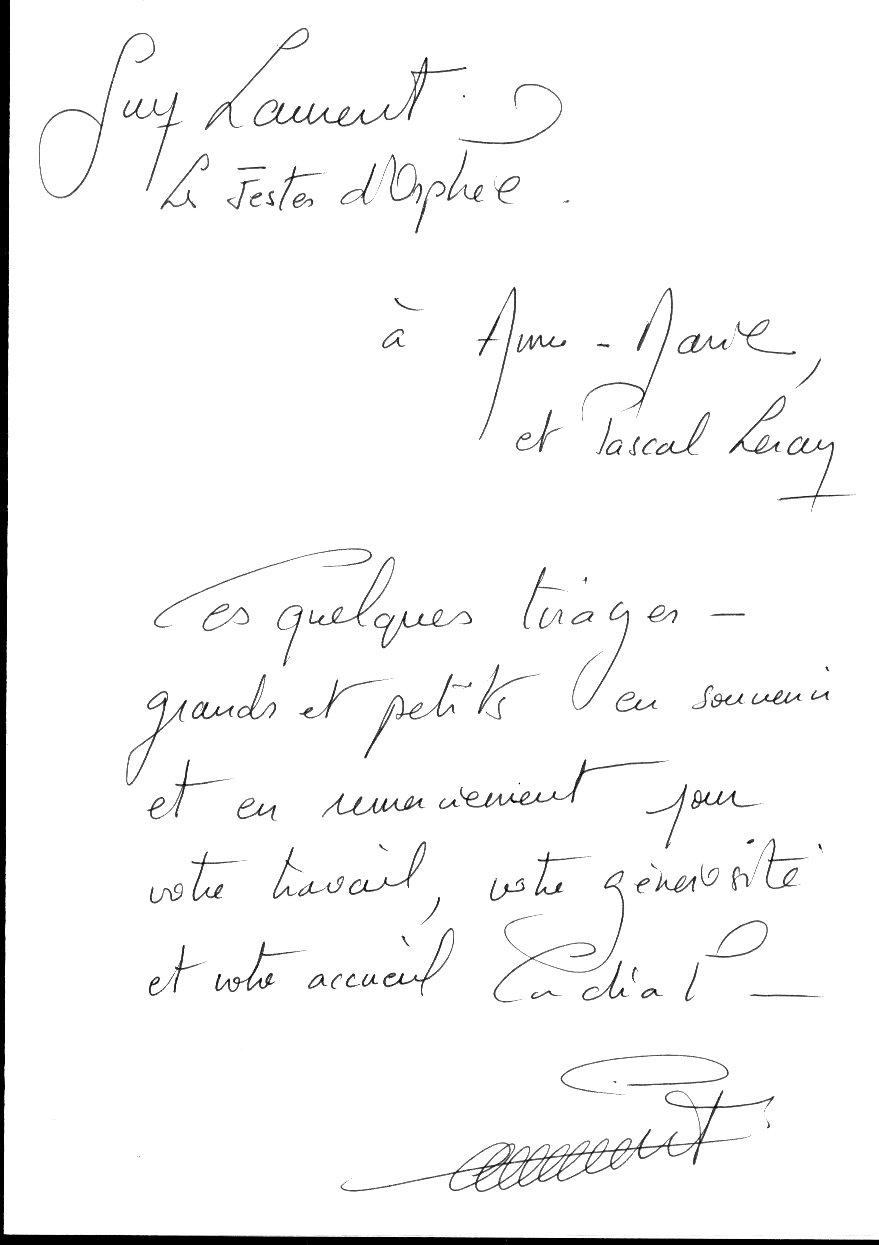 Guy Laurent.
Les Festes d'Orphée.
à Anne-Marie,
et Pascal Leray
Ces quelques tirages -
grands et petits en souvenir
et en remerciement pour
votre travail, votre générosité
et votre accueil Cordial -